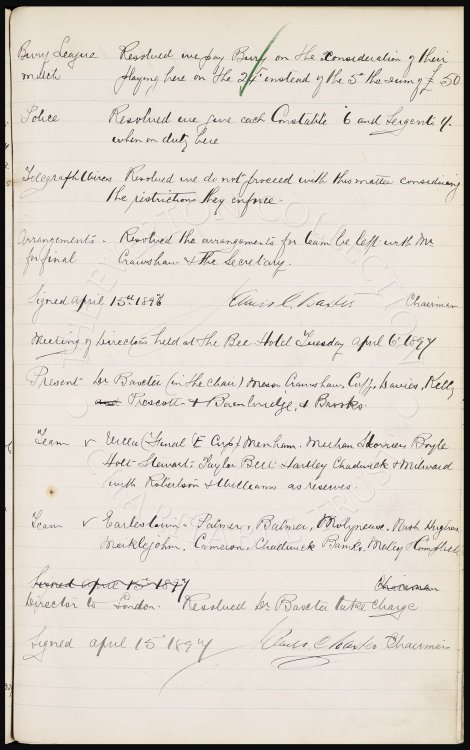 Bury League Resolved we pay Bury on the consideration of their
match playing here on the 24th instead of the 5th the sum of £50
Police Resolved we give each Constable /6 and Sergents 1/-
when on duty here
Telegraph Wires Resolved we do not proceed with this matter considering
the restrictions they enforce.
Arrangements. Resolved the arrangements for team be left with Mr
for final Crawshaw & the Secretary.
Signed April 15th 1896 James C. Baxter Chairman
Meeting of Directors held at the Bee Hotel Tuesday April 6 1897
Present Dr Baxter (in the chair) Messrs Crawshaw, Cuff, Davies, Kelly
and Prescott & Bainbridge, & Brooks.
Team v Villa (Final E Cup) Menham. Meehan Storrier Boyle
Holt Stewart. Taylor Bell Hartley Chadwick & Milward
with Robertson & Williams as reserves.
Team v Earlestown. Palmer, Balmer, Molyneux, Hughes
Meiklejohn, Cameron, Chadwick Banks. Campbell
Signed April 15 1897 Chairman
Director to London. Resolved Dr Baxter take charge
Signed April 15 1897 James C Baxter Chairman
THE EVERTON COLLECTION
CHARITABLE TRUST